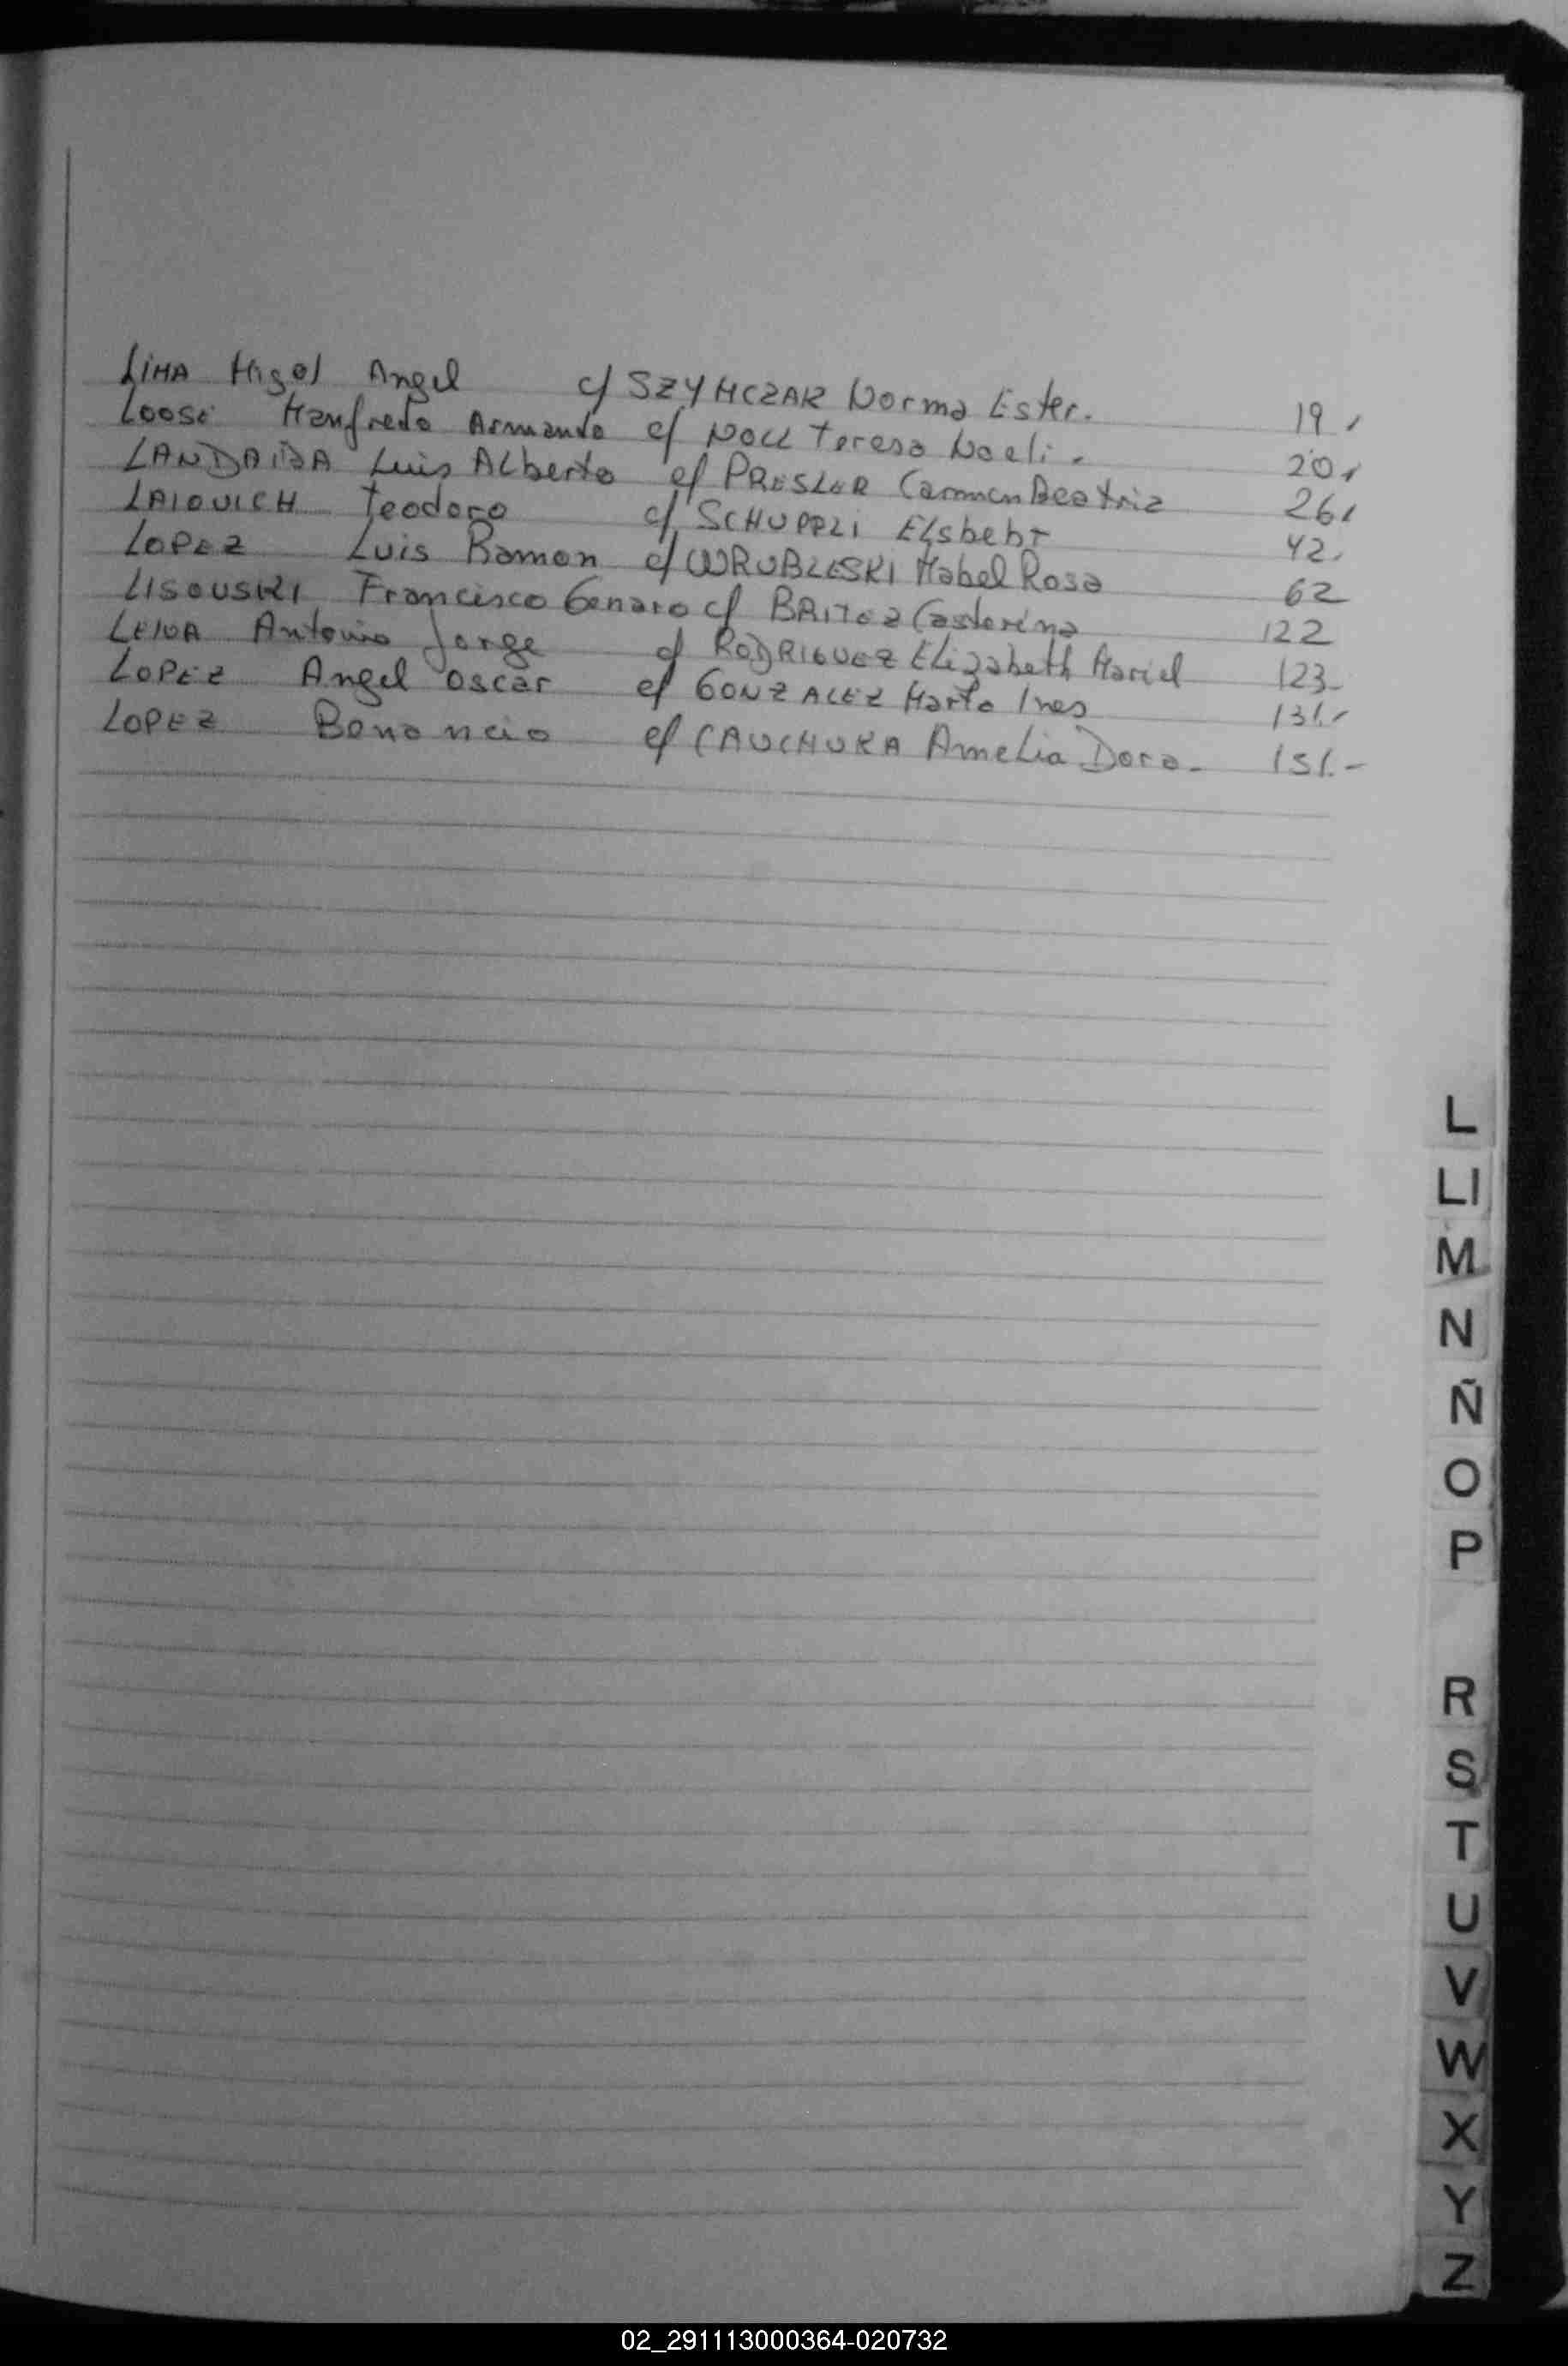 LIMA Migel Angel c/ SZYMCZAK Norma Ester. 19
LOOSE Manfredo Armando c/ NOLL Teresa Noeli. 20
LANDAIDA Luis ALberto c/ PRESLER Carmen Beatriz 26
LAIOVICH Teodoro c/ SCHUPPLI Elsbeht 42
LOPEZ Luis Ramon c/ WRUBLESKI Mabel Rosa 62
LISOUSKI Francisco Genaro c/ BRITEZ Casterina 122
LEIVA Antonio Jorge c/ RODRIGUEZ Elizabeth Mariel 123
LOPEZ Angel Oscar c/ GONZALEZ Marta Ines 131.-
LOPEZ Bonancio c/ CAUCHUKA Amelia Dora- 151.-
L
LI
M
N
Ñ
O
P
R
S
T
U
V
W
X
Y
Z
02_291113000364-020732